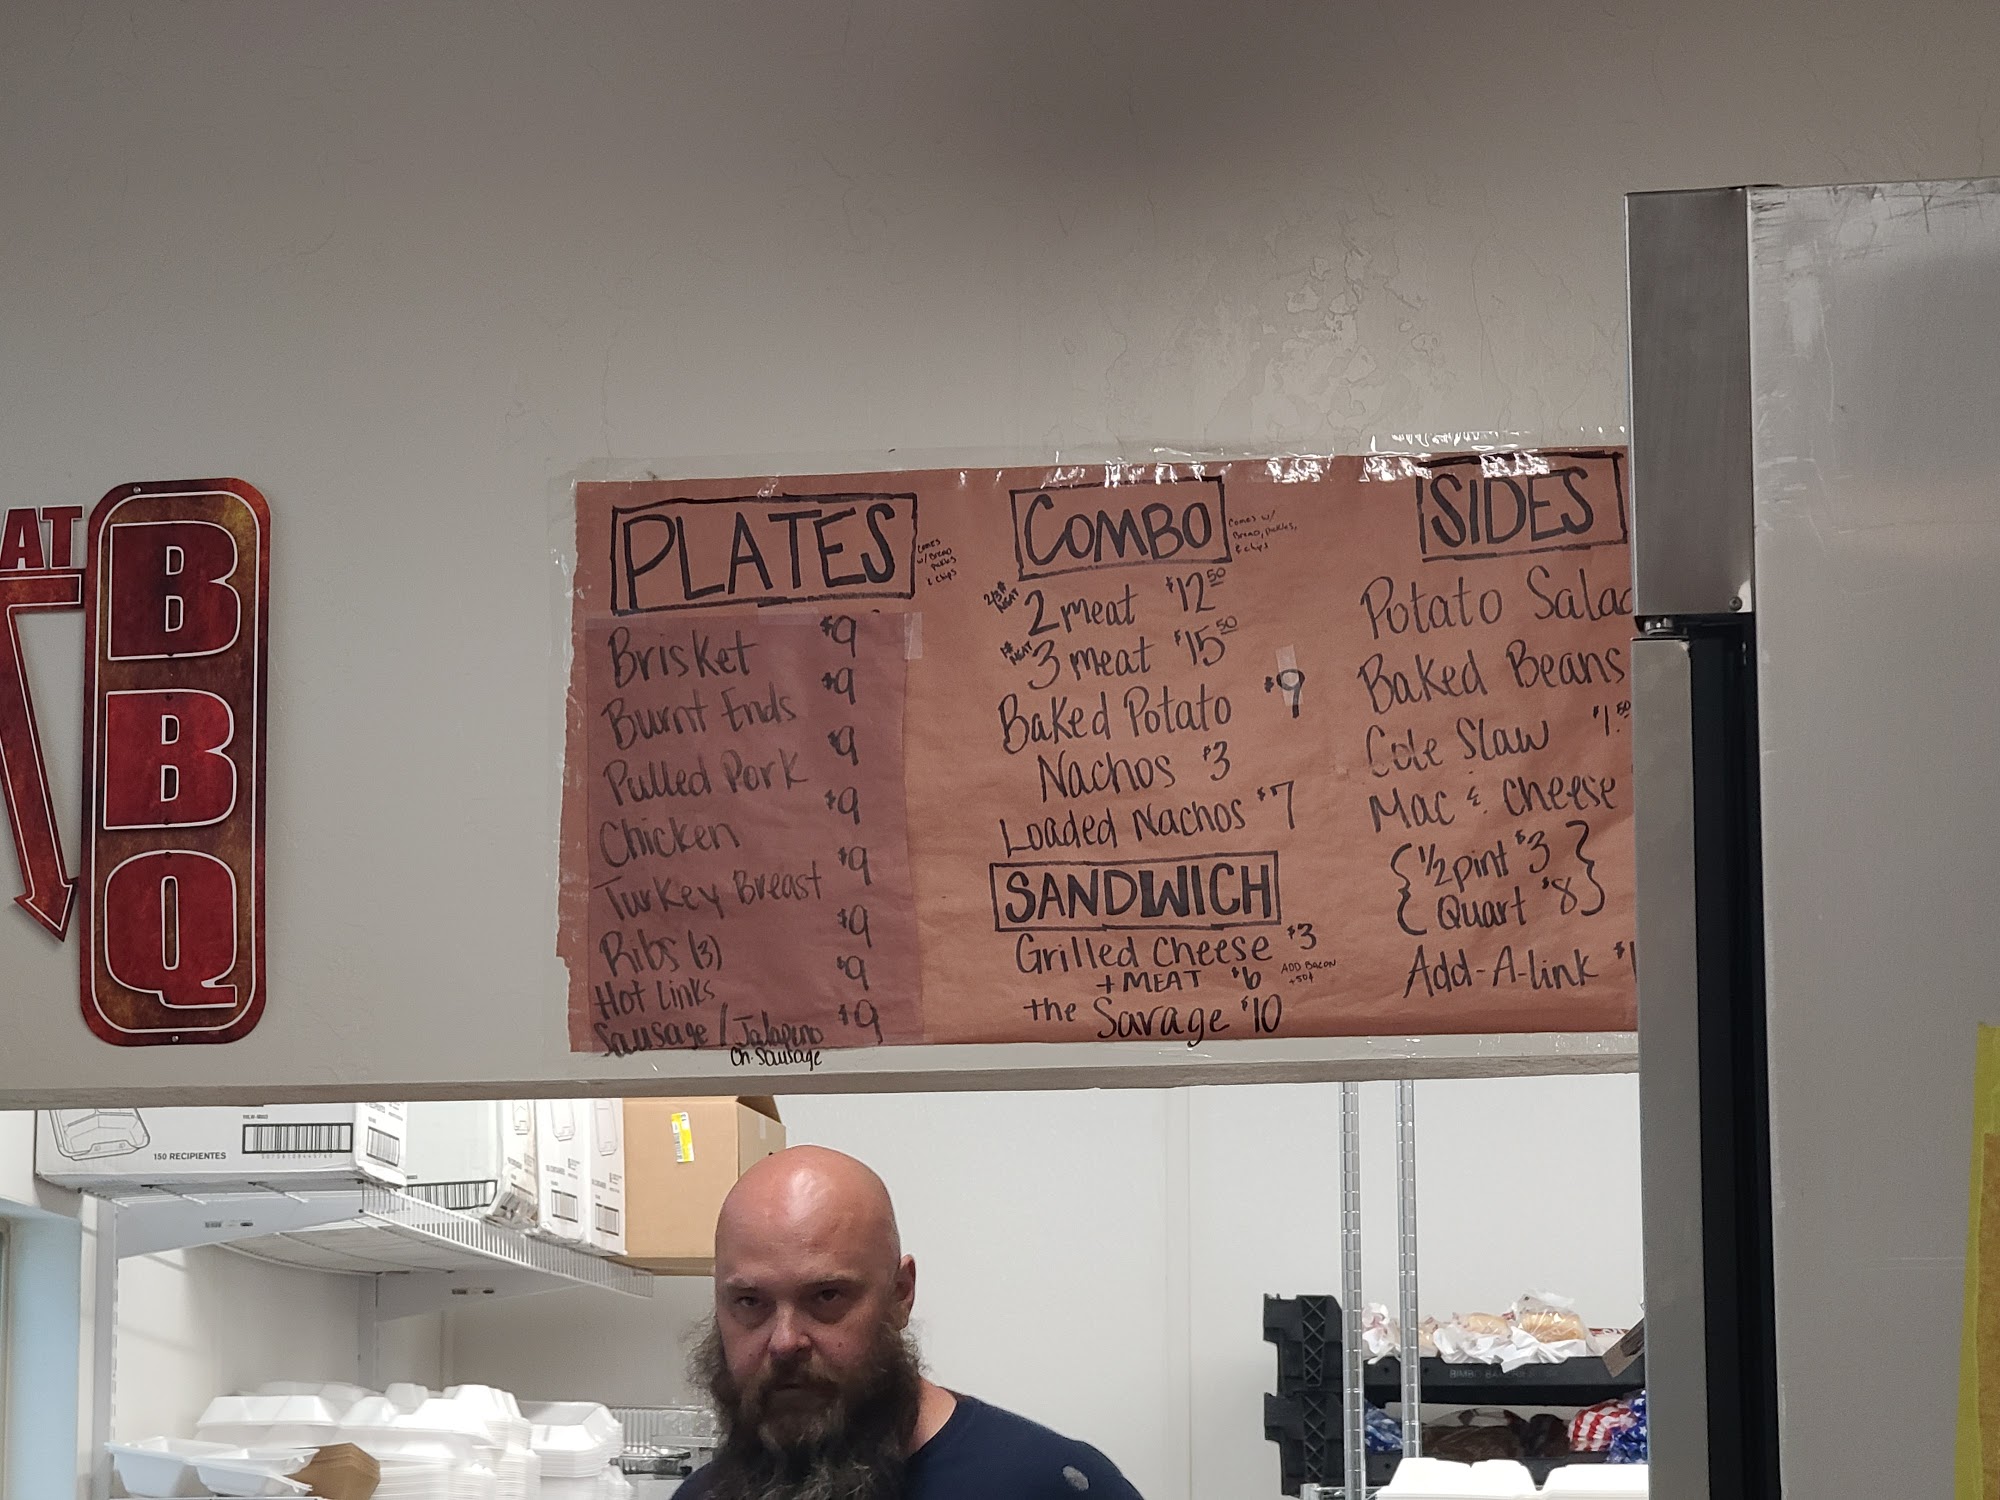 AT
BBQ
PLATES
Comes
w/ Bread
Pickles
& chips
Brisket $9
Burnt Ends $9
Pulled Pork $9
Chicken $9
Turkey Breast $9
Ribs (3) $9
Hot Links $9
Sausage / Jalapeno $9
Ch. Sausage
COMBO
Comes w/
Bread, pickles,
& chips
2/3# MEAT
2 meat $12.50
1# MEAT
3 meat $15.50
Baked Potato $9
Nachos $3
Loaded Nachos $7
SANDWICH
Grilled Cheese $3
+ MEAT $6
ADD BACON
+50¢
the Savage $10
SIDES
Potato Salad
Baked Beans
Cole Slaw $1.50
Mac & Cheese
{ 1/2 pint $3 }
{ Quart $8 }
Add-A-Link $1
150 RECIPIENTES
BIMBO